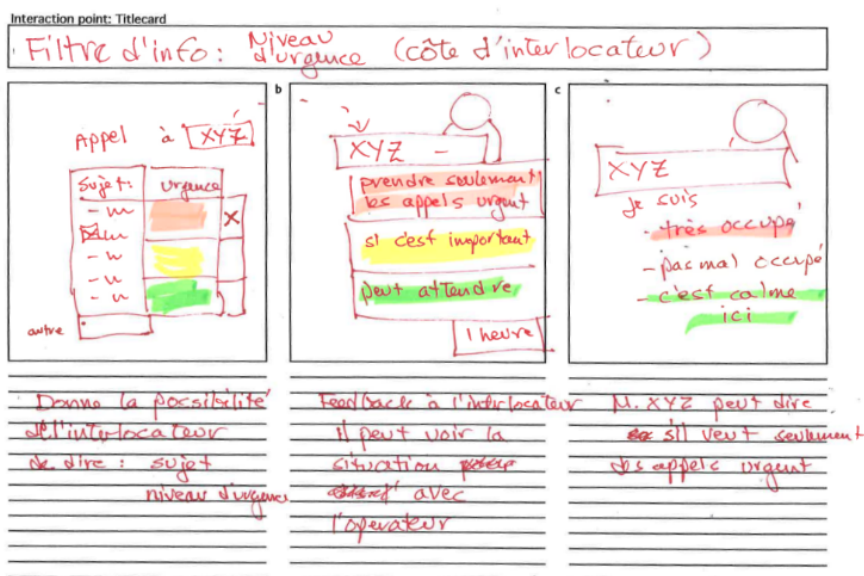 Interaction point: Titlecard
Filtre d'info: Niveau d'urgence (côte d'interlocateur)
Appel à XYZ
Sujet: urgence
X
autre
b
XYZ -
prendre seulement
les appels urgent
si c'est important
peut attendre
1 heure
c
XYZ
je suis
- très occupé
- pas mal occupé
- c'est calme
ici
Donne la possibilité
de l'interlocateur
de dire : sujet
niveau d'urgence
Feedback à l'interlocateur
il peut voir la
situation
avec
l'operateur
M. XYZ peut dire
s'il veut seulement
des appels urgent